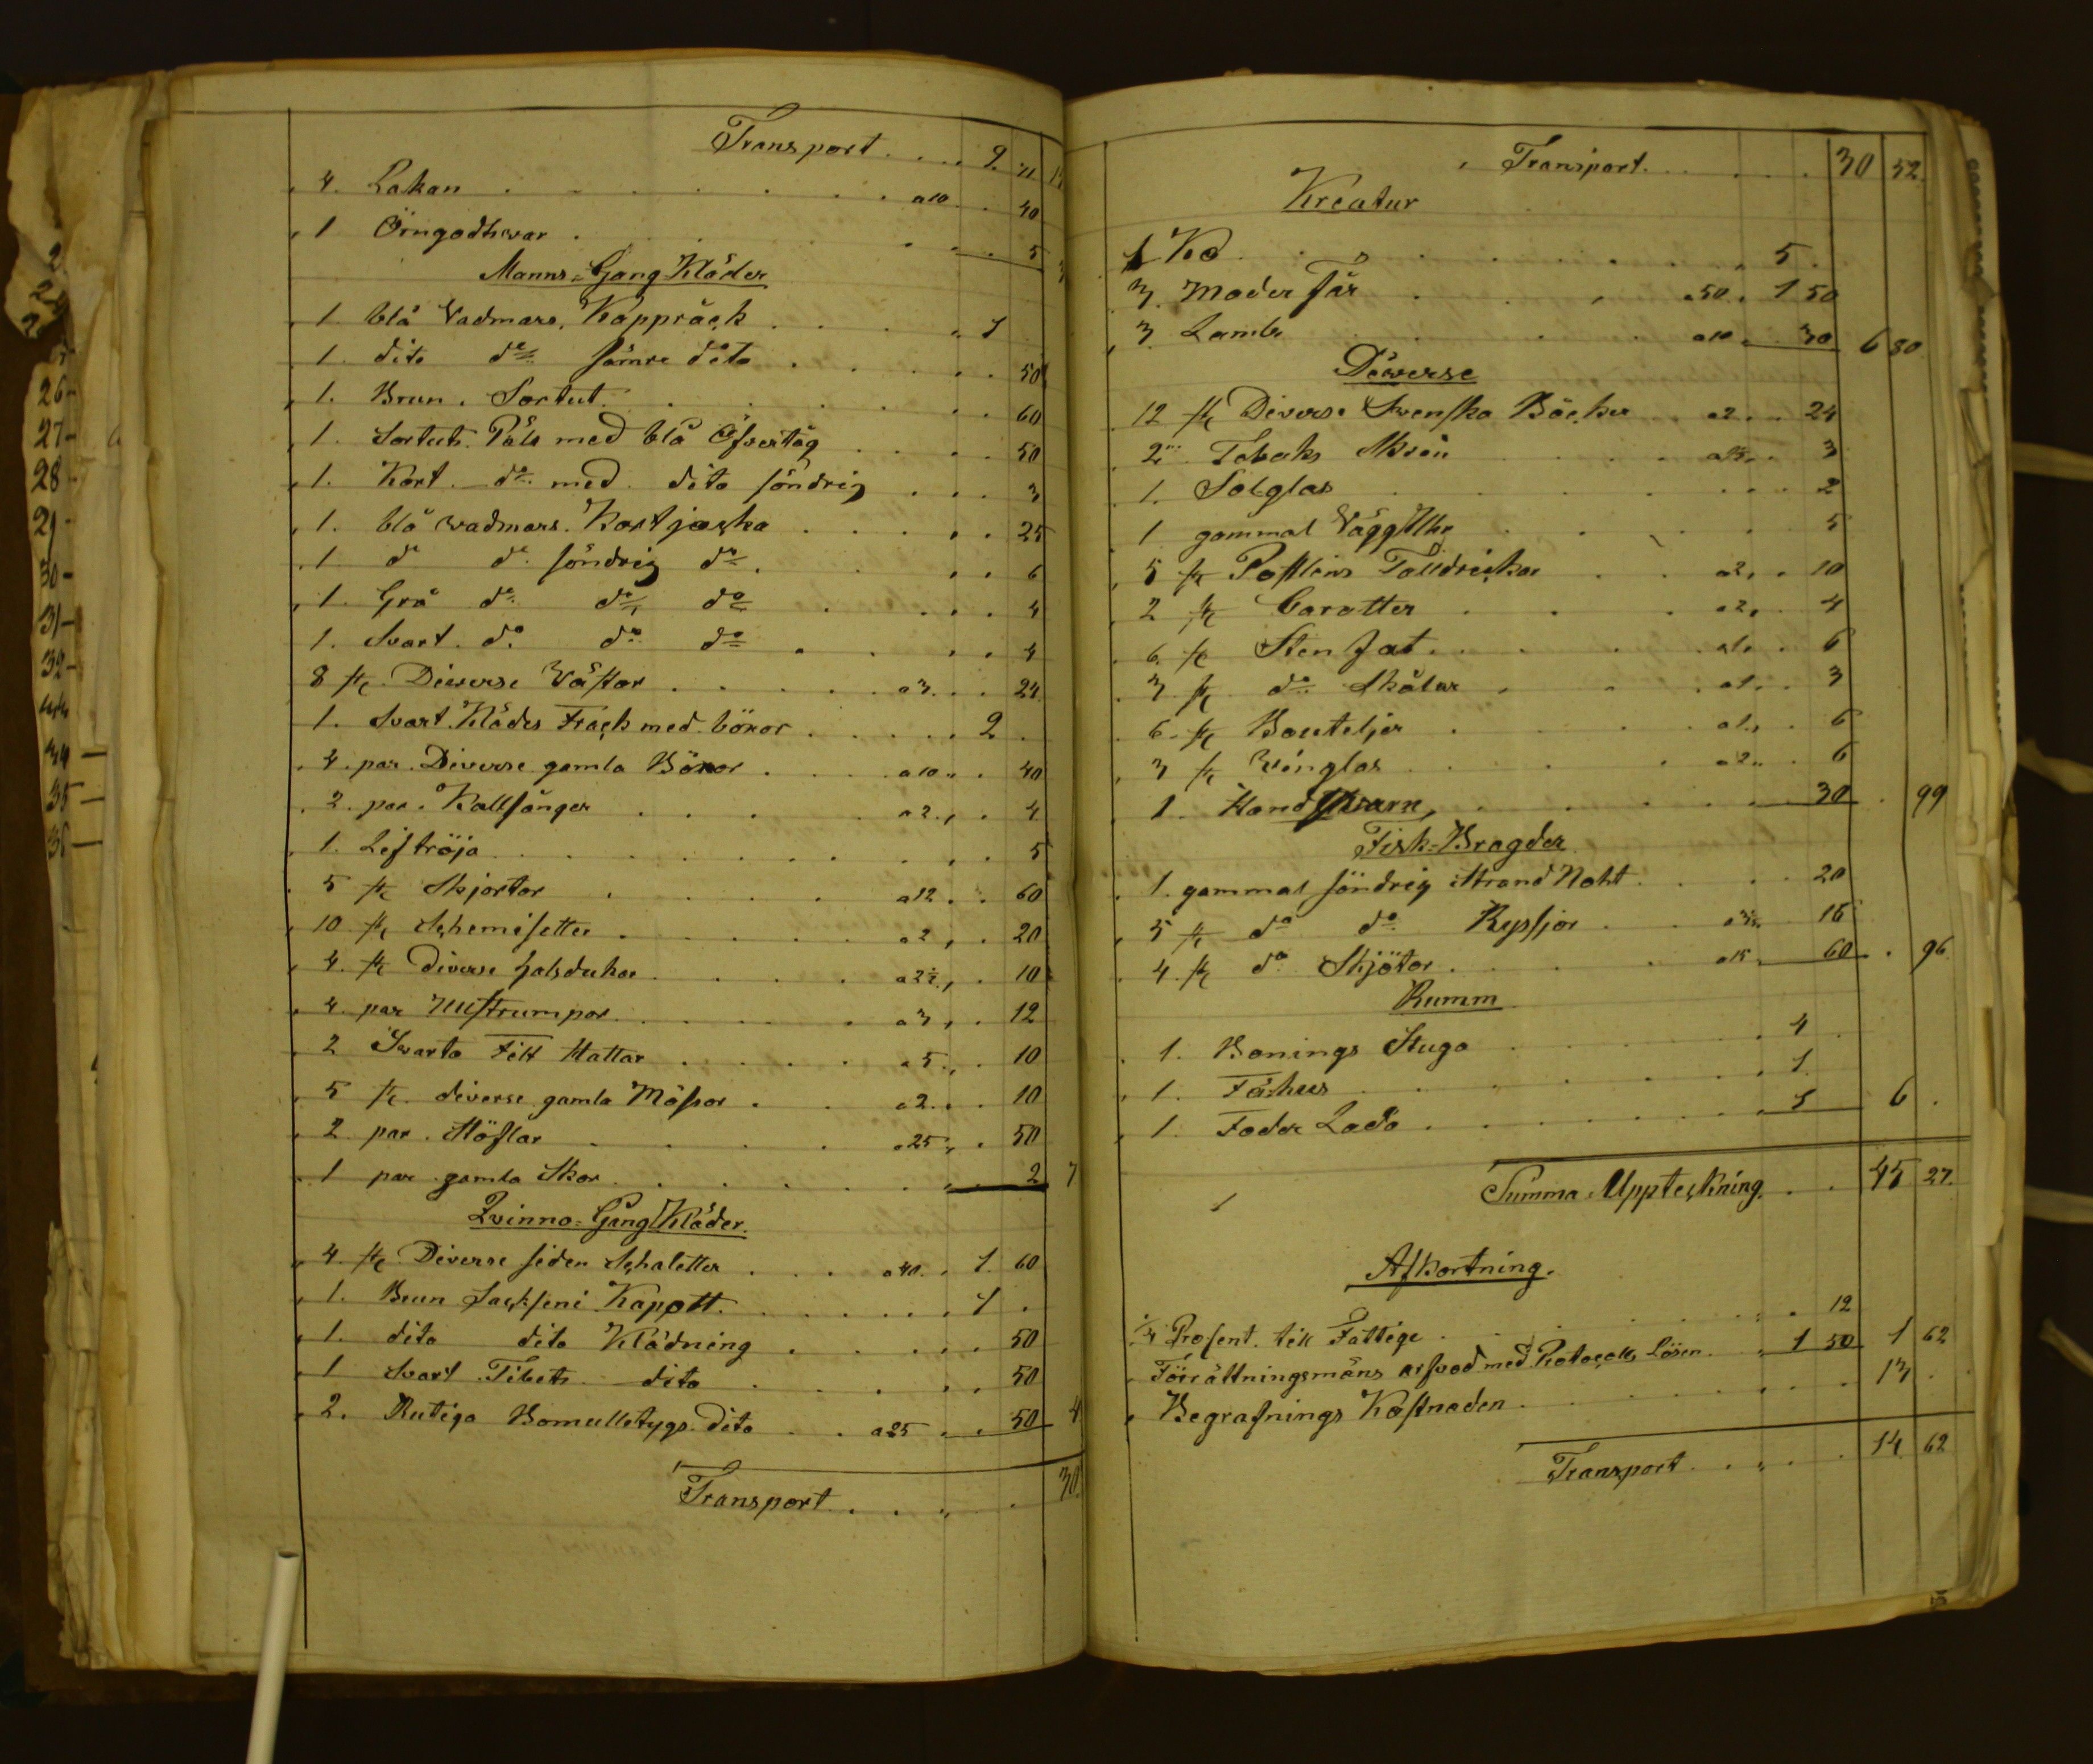 Transport . . . . 2.
4. Lakan . . . . . . . a 10 . . 40
1 Örngodhwar . . . . . . 5
Manns=Gang Kläder
1. blå Vadmars, Kappråck . . . . 1
1. dito do sämre dito . . . . . . 50
1. Brun Sortut . . . . . . 60
1. Sortuts Päls med blå Öfvertåg . . . . 50
1. Kort do med dito söndrig . . . 3
1. blå wadmars. Kortjacka . . . . . 25
1 do do söndrig do . . . . 6
1. Grå do do do . . . . 4
1. Svart do do do . . . . 4
8 st Diverse Västar . . . . . a 3. . . 24
1. Svart Klädes Frack med böxor . . . . . 2 .
4. par Diverse gamla Böxor . . . . a 10 . . 40
2. par Kallsånger . . . . a 2 . . 4
1. Liftröja . . . . . . . . . 5
5 st Skjortor . . . . . a 12 . . 60
10 st Schemisetter . . . . . a 2 . . 20
4. st diverse halsdukar . . . . a 2½ . . 10
4 par Ullstrumpor . . . . . a 3 . . 12
2 Svarta Filt Hattar . . . . a 5 . . 10
5 st diverse gamla Mössor . . a 2 . . 10
2 par Stöflar . . . . . a 25 . . 50
1 par gamla Skor . . . . . . . . 2 7
Qvinno=Gång Kläder.
4 st Diverse siden Schaletter . . . a 40. . 1. 60
1. Brun Kapott . . . . . . . 1 .
1. dito dito Klädning . . . . . 50
1 Svart Tibets dito . . . . . 50
2. Rutiga Bomullstygs Dito . . a 25 . . 50 4
Transport . . . . . 30
Transport . . . . . 30 52
Kreatur
1 Ko . . . . . . . . . 5 .
3. Moder får . . . a 50 . 1 50
3 Lamb . . . . . a 10 . 30 6 80
Diwerse
12 st Diverse Swenska Böcker . . a 2 . . 24
2 Tobaks Skrin . . . . 3
1. Solglas . . . . . . . . 2
1 gammal Väggur . . . . . 5
5 st Postlins Talldrickar . . a 2 . . 10
2 st Carotter . . . . a 2 . . 4
6 st Stenfat . . . . . a 1 . . 6
3 st do Skålar . . . . a 1 . . 3
6 st Bouteljer . . . . . a 1 . . 6
3 st Vinglas . . . . . a 2 . . 6
1. Handqvarn . . . . . . 30 . 99
Fisk=Bragder
1. gammal söndrig Strand Noht . . . . 20
5 st do do Rysjor . . a 3 . . 16
4. st do Skjötor . . . . . a 15 . 60 . 96
Rumm
1. Bonings Stuga . . . . . . 4 .
1. Fähus . . . . . . . 1.
1. Foder Lada . . . . . . . 1 6 .
Summa Uppteckning . . . 45 27.
Afkortning.
¼ Prosent till Fattige . . . . . . 12
Förrättningsmäns arfvod med Protocolls lösen . . 1 50 1 62
Begrafnings Kostnaden . . . . . . 13 .
Transport . . . . . 14 62
26
27
28
29
30
31
32
34
35
36